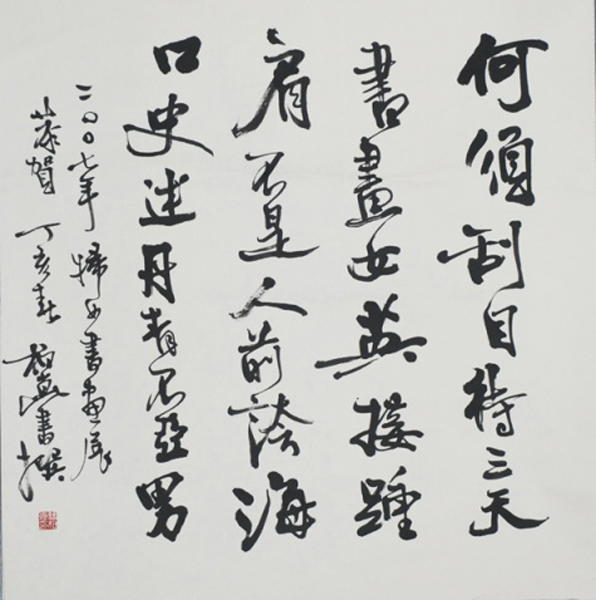 何須刮目待三天
書畫女英接踵
肩不是人前誇海
口史述丹青不亞男
二〇〇七年婦女書畫展
恭賀丁亥春書撰